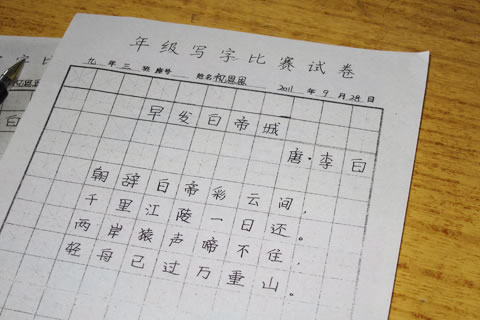 年级写字比赛试卷
九 年 三 班 座号 姓名 2011 年 9 月 28 日
早发白帝城
唐·李白
朝辞白帝彩云间，
千里江陵一日还。
两岸猿声啼不住，
轻舟已过万重山。